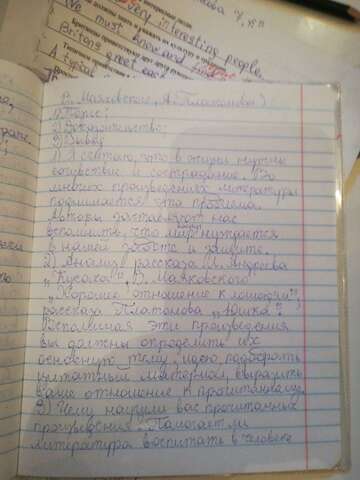 must know and
very interesting people.
Britons greet each
A typical
В. Маяковские, А. Платонова)
1) Тезис;
2) Доказательства;
3) Вывод
1) Я считаю, что в жизни нужны
сочувствие и сострадание. Во
многих произведениях литературы
поднимается эта проблема.
Авторы заставляют нас
вспомнить, что мир нуждается
в нашей заботе и защите.
2) Анализ рассказа Л. Андреева
„Кусака", В. Маяковского
„Хорошее отношение к лошадям",
рассказа Платонова „Юшка".
Вспоминая эти произведения
вы должны определить их
основную тему, идею, подобрать
цитатный материал, выразить
ваше отношение к прочитанному.
3) Чему научили вас прочитанные
произведения. Помогает ли
литература воспитать в человеке